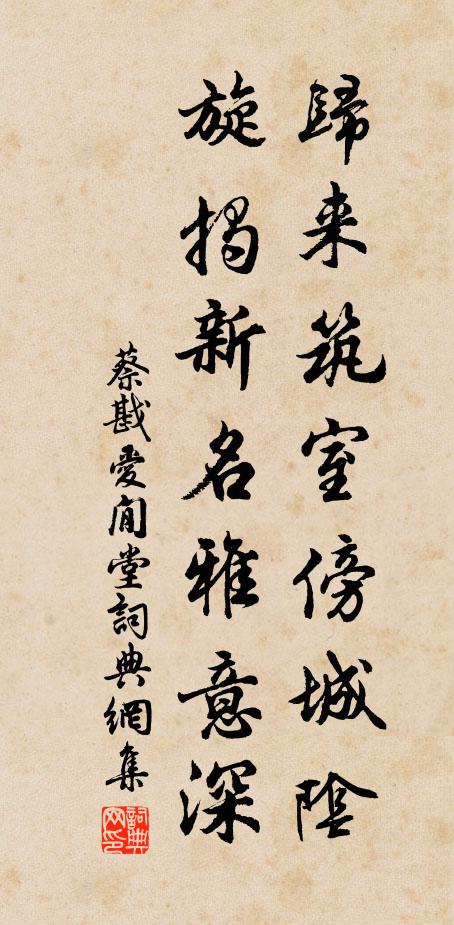 歸来筑室傍城陰
旋揭新名雅意深
蔡戡愛閒堂詞典網集
詞典網印